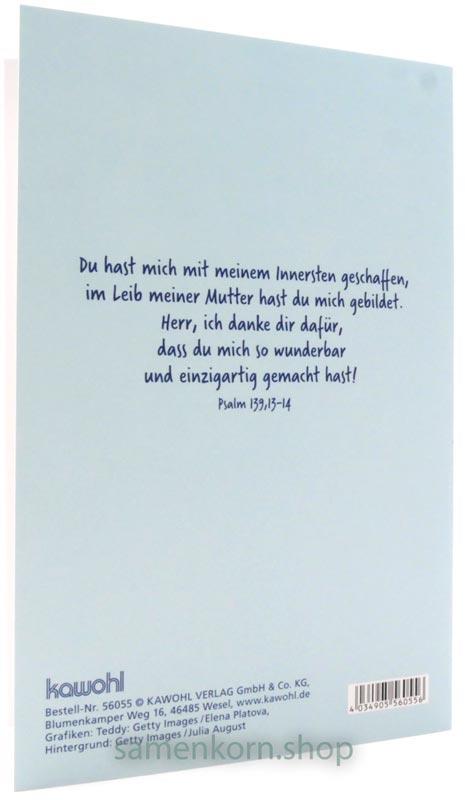 Du hast mich mit meinem Innersten geschaffen,
im Leib meiner Mutter hast du mich gebildet.
Herr, ich danke dir dafür,
dass du mich so wunderbar
und einzigartig gemacht hast!
Psalm 139,13-14
kawohl
Bestell-Nr. 56055 © KAWOHL VERLAG GmbH & Co. KG,
Blumenkamper Weg 16, 46485 Wesel, www.kawohl.de
Grafiken: Teddy: Getty Images / Elena Platova,
Hintergrund: Getty Images / Julia August
4 034905 560556
samenkorn.shop